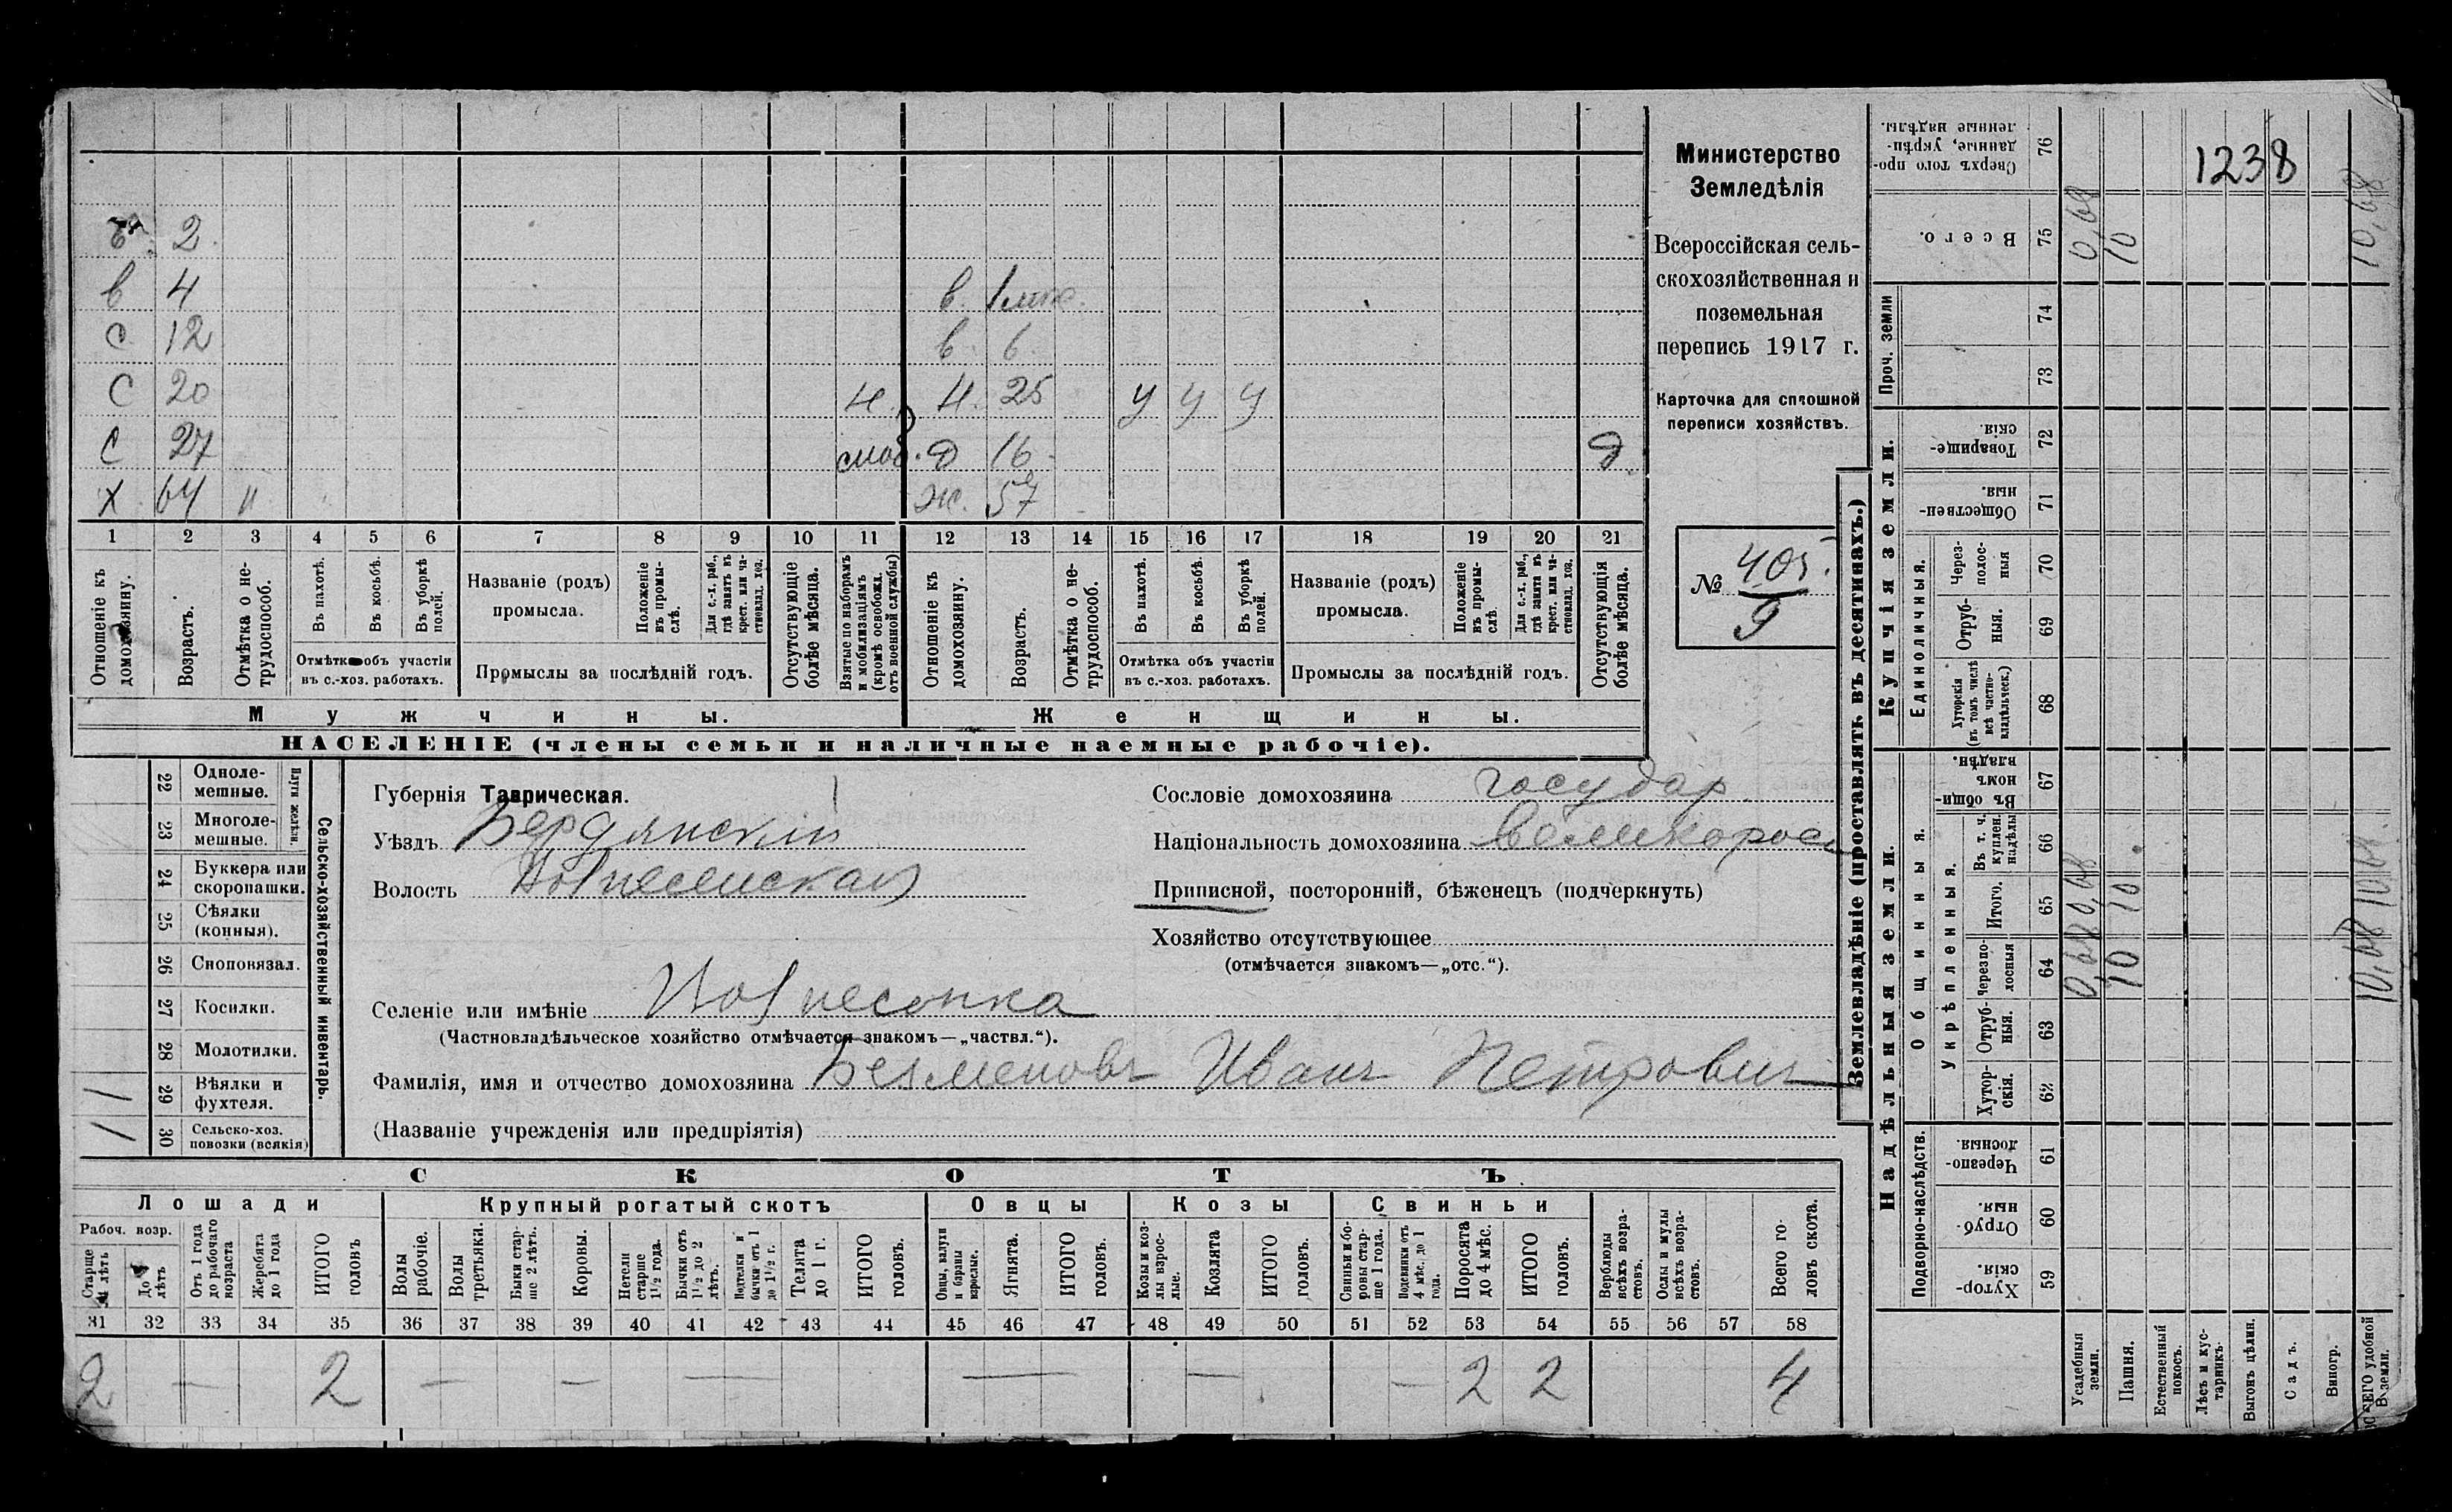 в. 2
в 4 в. 1 мес.
с 12 в. 6
с 20 н. Н. 25 у у у
с 27 моб. д 16 д.
х 64 " ж. 57
1 2 3 4 5 6 7 8 9 10 11 12 13 14 15 16 17 18 19 20 21
Отношеніе къ домохозяину.
Возрастъ.
Отмѣтка о не-трудоспособ.
Въ пахотѣ.
Въ косьбѣ.
Въ уборкѣ полей.
Отмѣтка объ участіи
въ с.-хоз. работахъ.
Названіе (родъ)
промысла.
Положеніе въ промы-слѣ.
Для с.-х. раб., гдѣ занятъ въ крест. или ча-стновлад. хоз.
Промыслы за послѣдній годъ.
Отсутствующіе болѣе мѣсяца.
Взятые по наборамъ и мобилизаціямъ (кромѣ освобожд. отъ военной службы)
Отношеніе къ домохозяину.
Возрастъ.
Отмѣтка о не-трудоспособ.
Въ пахотѣ.
Въ косьбѣ.
Въ уборкѣ полей.
Отмѣтка объ участіи
въ с.-хоз. работахъ.
Названіе (родъ)
промысла.
Положеніе въ промы-слѣ.
Для с.-х. раб., гдѣ занята въ крест. или ча-стновлад. хоз.
Промыслы за послѣдній годъ.
Отсутствующія болѣе мѣсяца.
Мужчины. Женщины.
НАСЕЛЕНІЕ (члены семьи и наличные наемные рабочіе).
Министерство
Земледѣлія
Всероссійская сель-
скохозяйственная и
поземельная
перепись 1917 г.
Карточка для сплошной
переписи хозяйствъ.
№ 405.
9
Сельско-хозяйственный инвентарь.
Плуги желѣзн.
22 Одноле-мешные.
23 Многоле-мешные.
24 Буккера или скоропашки.
25 Сѣялки (конныя).
26 Сноповязал.
27 Косилки.
28 Молотилки.
1 29 Вѣялки и фухтеля.
1 30 Сельско-хоз. повозки (всякія)
Губернія Таврическая.
Уѣздъ Бердянскій
Волость Вознесенская
Селеніе или имѣніе Вознесенка
(Частновладѣльческое хозяйство отмѣчается знакомъ—„частвл.“).
Фамилія, имя и отчество домохозяина Безменовъ Иванъ Петровичъ
(Названіе учрежденія или предпріятія)
Сословіе домохозяина государ
Національность домохозяина великорос
Приписной, посторонній, бѣженецъ (подчеркнуть)
Хозяйство отсутствующее
(отмѣчается знакомъ—„отс.“).
СКОТЪ
Лошади Крупный рогатый скотъ Овцы Козы Свиньи
Рабоч. возр.
Старше 4 лѣтъ
До 4 лѣтъ
Отъ 1 года до рабочаго возраста
Жеребята до 1 года
ИТОГО головъ
Волы рабочіе.
Волы третьяки.
Быки стар-ше 2 лѣтъ.
Коровы.
Нетели старше 1½ года.
Бычки отъ 1½ до 2 лѣтъ.
Нетелки и бычки отъ 1 до 1½ г.
Телята до 1 г.
ИТОГО головъ.
Овцы, валухи и бараны взрослые.
Ягнята.
ИТОГО головъ.
Козы и коз-лы взрос-лые.
Козлята
ИТОГО головъ.
Свиньи и бо-ровы стар-ше 1 года.
Подсвинки отъ 4 мѣс. до 1 года.
Поросята до 4 мѣс.
ИТОГО головъ.
Верблюды всѣхъ возра-стовъ.
Ослы и мулы всѣхъ возра-стовъ.
Всего го-ловъ скота.
31 32 33 34 35 36 37 38 39 40 41 42 43 44 45 46 47 48 49 50 51 52 53 54 55 56 57 58
2 — 2 — — — — — — 2 2 4
Землевладѣніе (проставлять въ десятинахъ.)
Надѣльныя земли. Купчія земли. Проч. земли
Подворно-наслѣдств.
Общинныя.
Укрѣпленныя.
Единоличныя.
59 Хутор-скія.
60 Отруб-ныя.
61 Черезпо-лосныя.
62 Хутор-скія.
63 Отруб-ныя.
64 Черезпо-лосныя 0,68 10 10,68
65 Итого. 0,68 10 10,68
66 Въ т. ч. куплен. надѣлы
67 Въ общи-номъ владѣн.
68 Хуторскія (въ томъ числѣ всѣ частно-владѣльческ.)
69 Отруб-ныя.
70 Через-полос-ныя
71 Обществен-ныя.
72 Товарище-скія.
73
74
75 Всего. 0,68 10 10,68
76 Сверхъ того про-данные, укрѣп-ленные надѣлы.
1238
Усадебныя земли.
Пашня.
Естественный покосъ.
Лѣсъ и кус-тарникъ.
Выгонъ цѣлин.
Садъ.
Виногр.
ВСЕГО удобной земли.